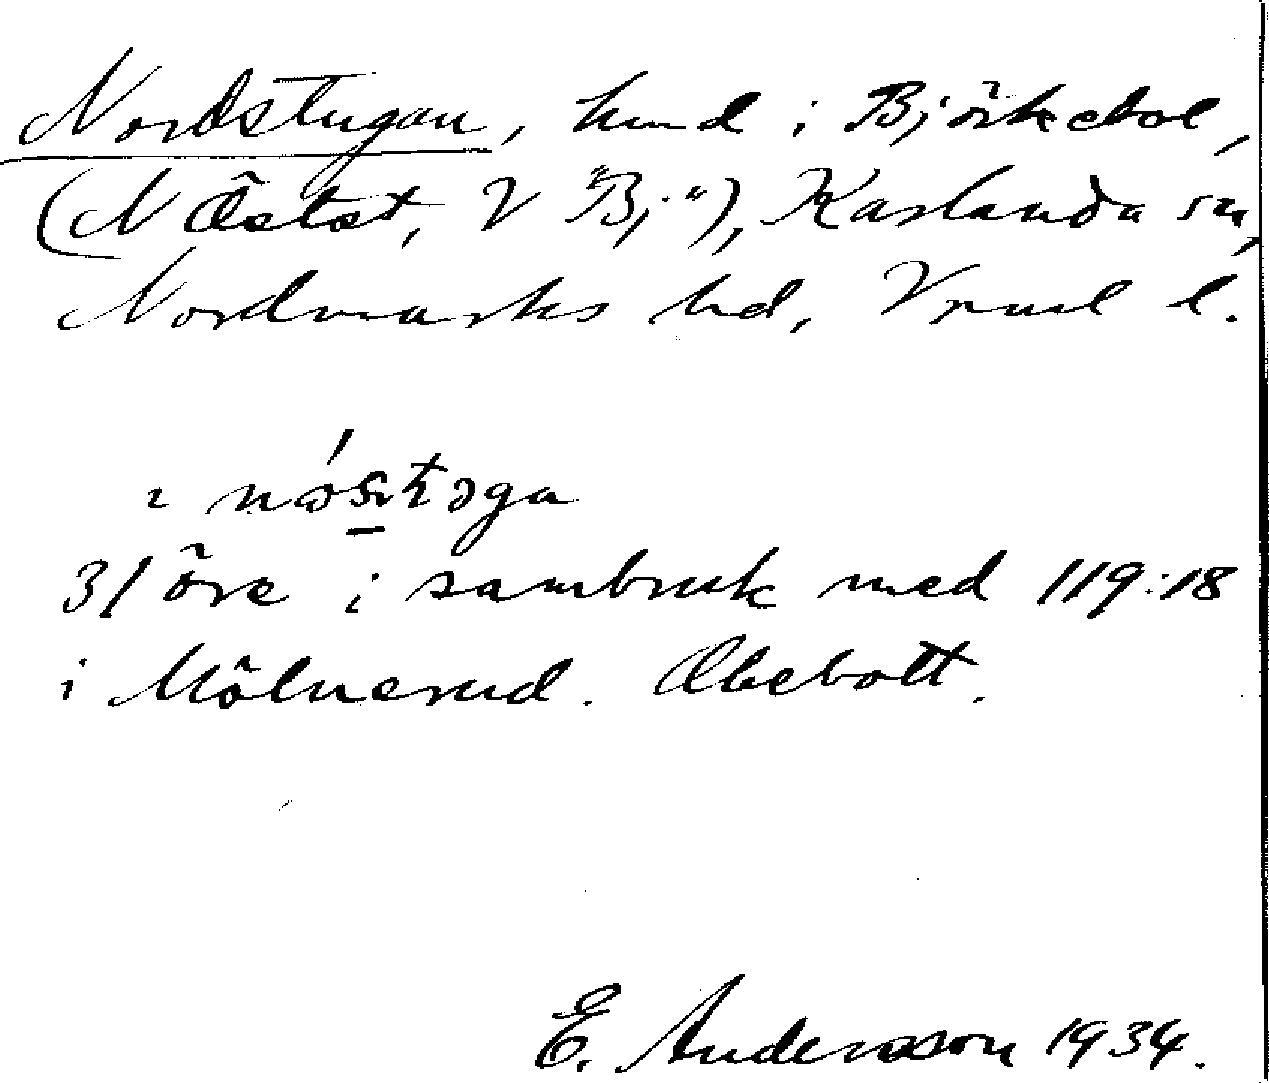 Nordstugan, hmd i Björkebol,
(N Östst, V "Bj"), Karlanda sn,
Nordmarks hd, Vrml l.
nǿs̱tɔga
31 öre i sambruk med 119:18
i Mölnerud. Obebott.
E. Andersson 1934.